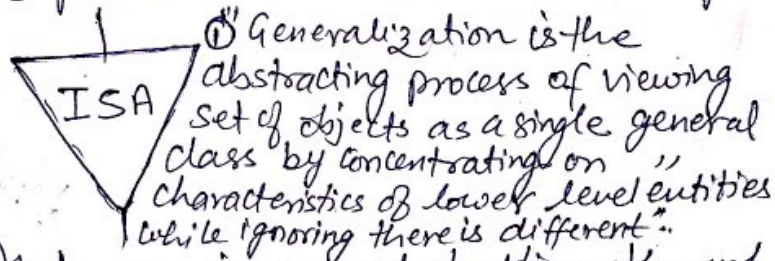 ISA
① "Generalization is the
abstracting process of viewing
set of objects as a single general
class by concentrating on "
characteristics of lower level entities
while ignoring there is different".